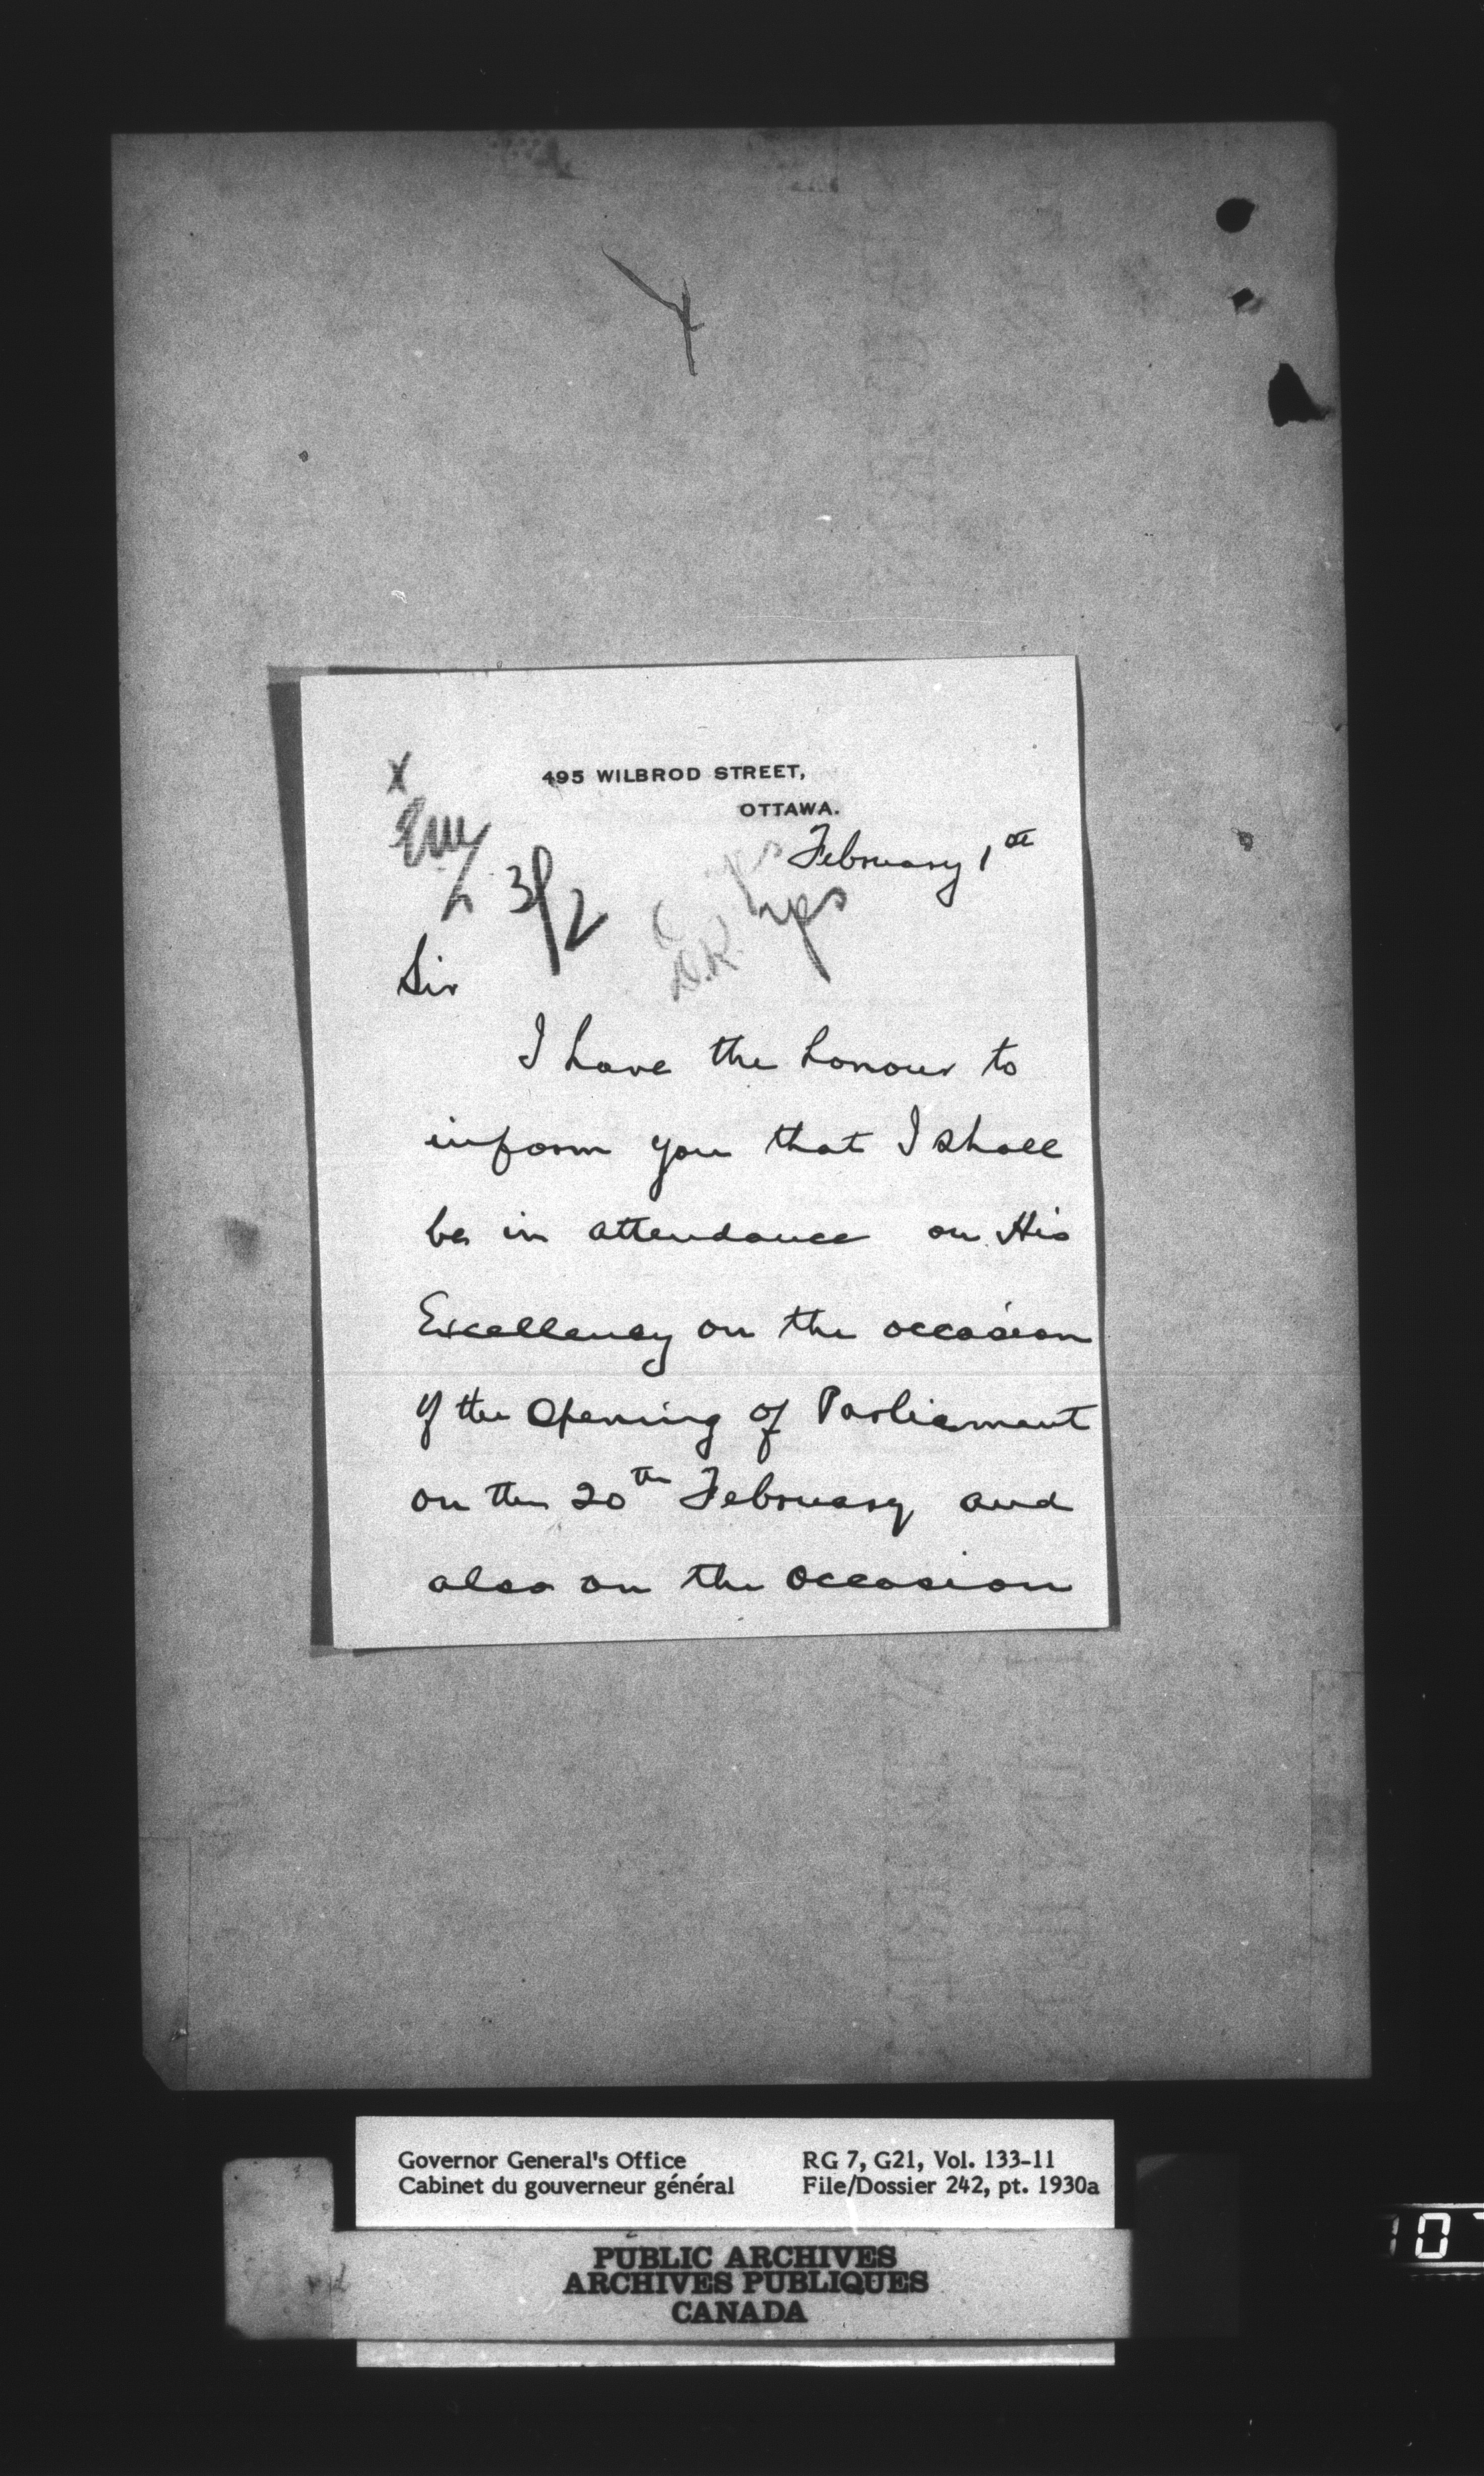 495 WILBROD STREET,
OTTAWA.
February 1st
X
3/2
D.R.
Sir
I have the honour to
inform you that I shall
be in attendance on His
Excellency on the occasion
of the Opening of Parliament
on the 20th February and
also on the occasion
Governor General's Office
Cabinet du gouverneur général
RG 7, G21, Vol. 133-11
File/Dossier 242, pt. 1930a
PUBLIC ARCHIVES
ARCHIVES PUBLIQUES
CANADA